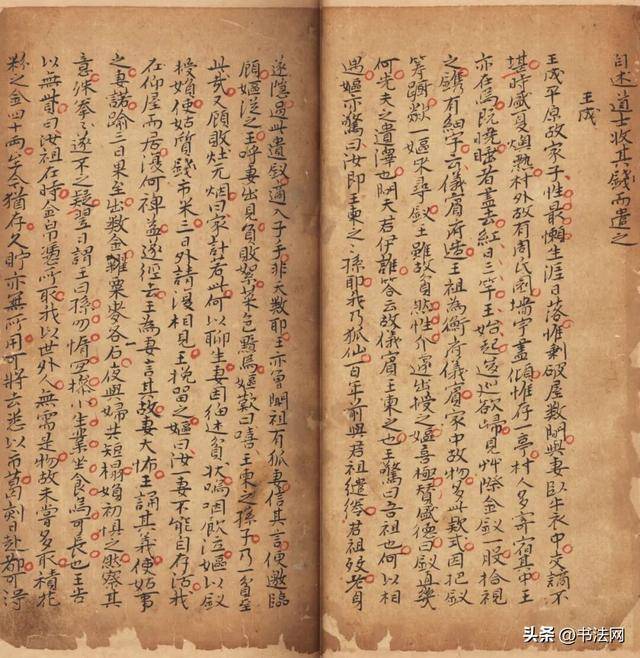 自述道士收其錢而遣之
王成
王成平原故家子性最懶生涯日落惟剩破屋數間與妻臥牛衣中交謫不
堪時盛夏燠熱村外故有周氏園墻宇盡傾惟存一亭村人多寄宿其中王
亦在焉既曉睡者盡去紅日三竿王始起逡巡欲歸見艸際金釵一股拾視
之鐫有細字云儀賓府造王祖為衡府儀賓家中故物多此款式因把釵
躊躇欻一嫗來尋釵王雖故貧然性介遽出授之嫗喜極贊盛德曰釵直幾
何先夫之遺澤也問夫君伊誰答云故儀賓王柬之也王驚曰吾祖也何以相
遇嫗亦驚曰汝即王柬之之孫耶我乃狐仙百年前與君祖繾綣君祖歿老身
遂隱過此遺釵適入子手非天數耶王亦曾聞祖有狐妻信其言便邀臨
顧嫗從之王呼妻出見負敗絮菜色黯焉嫗歎曰嘻王柬之孫子乃一貧至
此哉又顧敗灶无烟曰家計若此何以聊生妻因細述貧狀嗚咽飲泣嫗以釵
授婦使姑質錢市米三日外請復相見王挽留之嫗曰汝一妻不能自存活我
在仰屋而居復何裨益遂徑去王為妻言其故妻大怖王誦其義使姑事
之妻諾踰三日果至出數金糴粟麥各石夜與婦共短榻婦初懼之然察其
意殊拳拳遂不之疑翌日謂王曰孫勿惰宜操小生業坐食焉可長也王告
以無貲曰汝祖在時金帛憑所取我以世外人無需是物故未嘗多取積花
粉之金四十兩至今猶存久貯亦無所用可將去悉以市葛刻日赴都可得
头条 @书法网